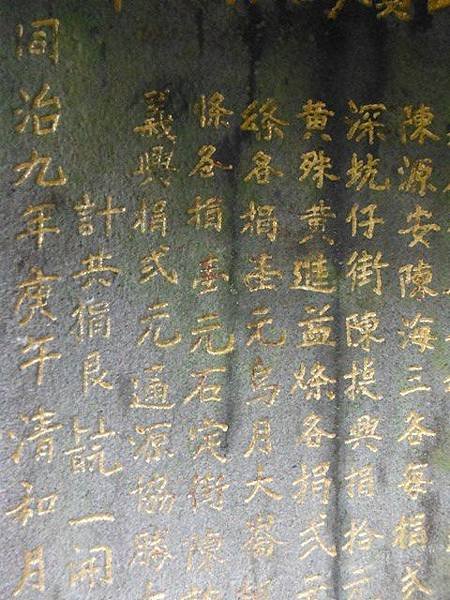 陳源安陳海三各每捐弍
深坑仔街陳興捐拾元
黄殊黄進益條各捐弍元
條各捐壹元烏月大
條各捐壹元石定街陳
義興捐弍元通源協勝
計共捐艮一開
同治九年庚午清和月